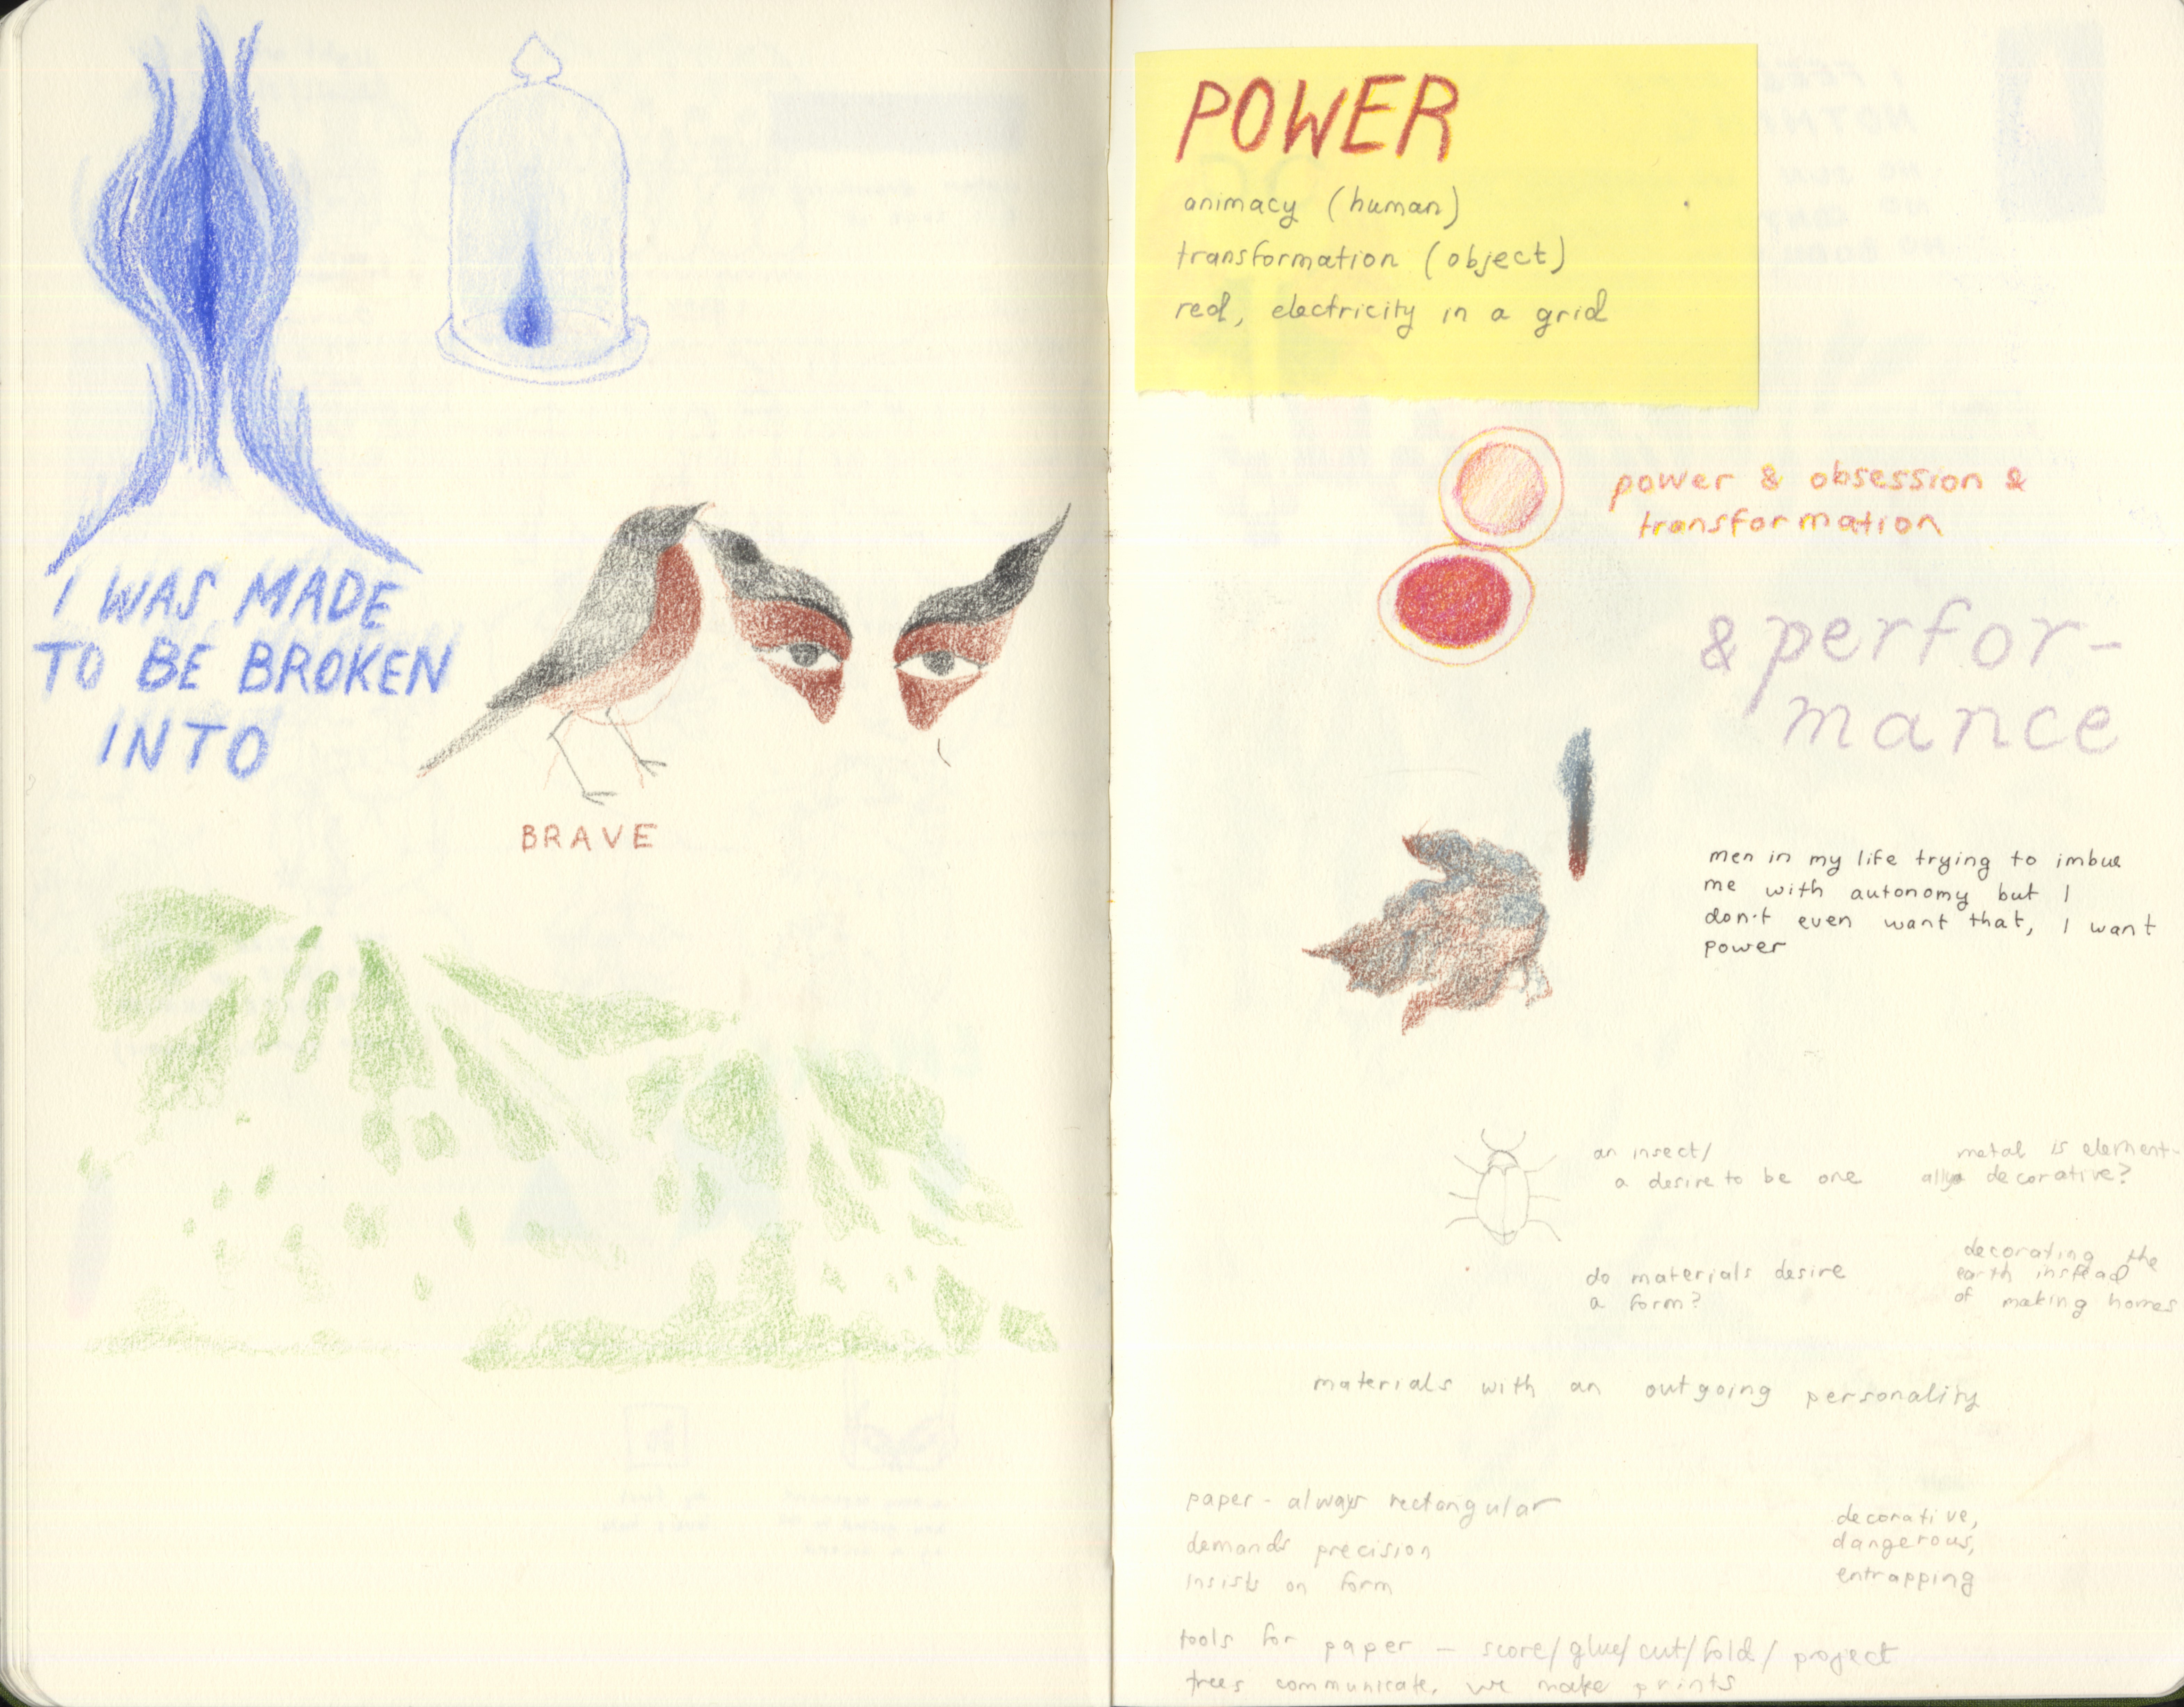 I WAS MADE
TO BE BROKEN
INTO
BRAVE
POWER
animacy (human)
transformation (object)
red, electricity in a grid
power & obsession &
transformation
& perfor-
mance
men in my life trying to imbue
me with autonomy but I
don't even want that, I want
power
an insect/
a desire to be one
metal is element-
ally decorative?
do materials desire
a form?
decorating the
earth instead
of making homes
materials with an outgoing personality
paper - always rectangular
demands precision
insists on form
decorative,
dangerous,
entrapping
tools for paper — score/glue/cut/fold/ project
trees communicate, we make prints